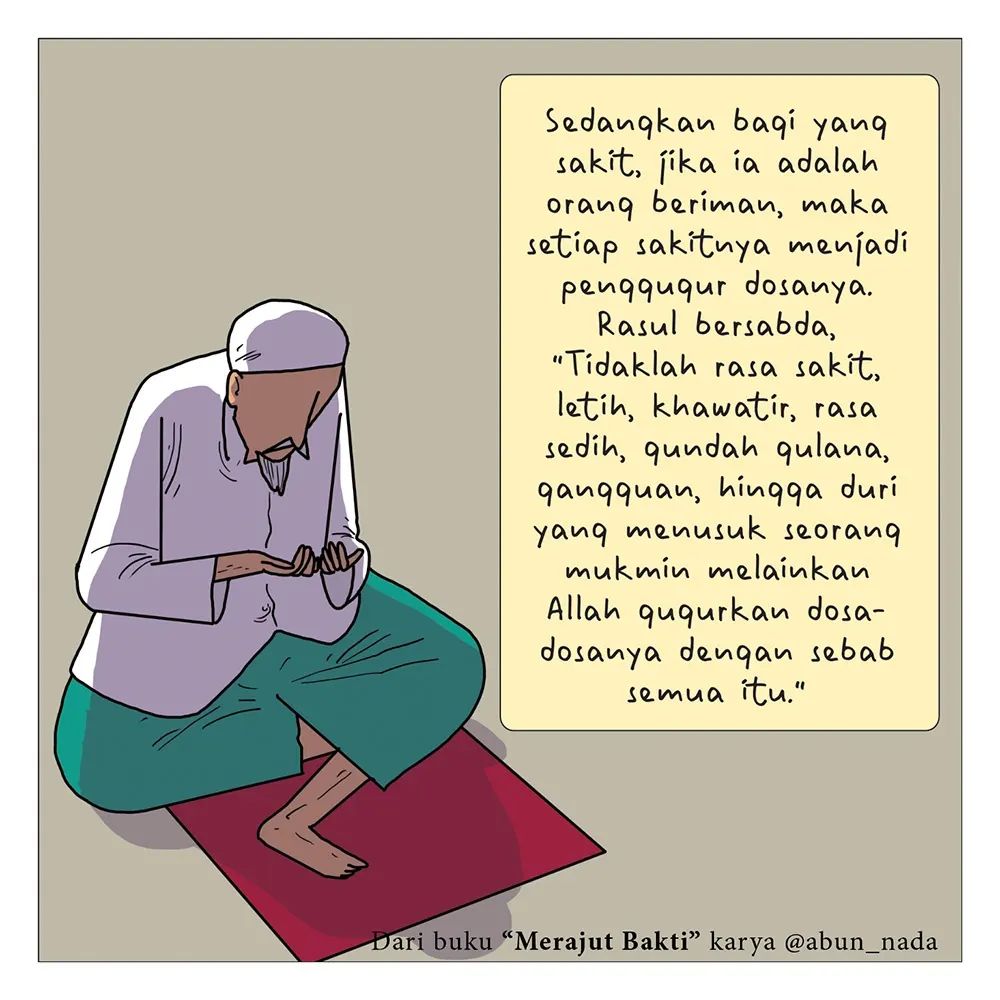 Sedangkan bagi yang
sakit, jika ia adalah
orang beriman, maka
setiap sakitnya menjadi
penggugur dosanya.
Rasul bersabda,
"Tidaklah rasa sakit,
letih, khawatir, rasa
sedih, gundah gulana,
gangguan, hingga duri
yang menusuk seorang
mukmin melainkan
Allah gugurkan dosa-
dosanya dengan sebab
semua itu."
Dari buku “Merajut Bakti” karya @abun_nada